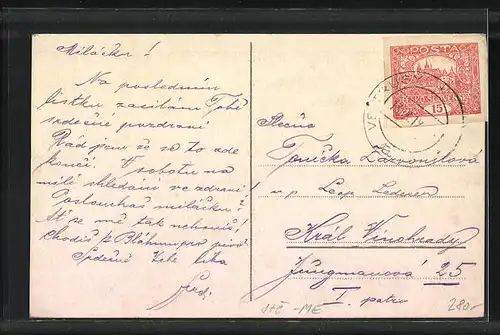 Miláčku!
Na posledním
lístku zasílám Tobě
srdečné pozdraví
Rád jsem že se to zde
končí. V sobotu na
milé shledání ve zdraví!
Posloucháš miláčku?
Ať se mě tak nehoníš!
Chodíš k Bláhům pro pivo?
Srdečně Tebe líbá
POŠTA
15
Slečna
Tonička
u p. Leop. Lederer
Král Vinohrady
Jungmanová 25
I. patro
280.-